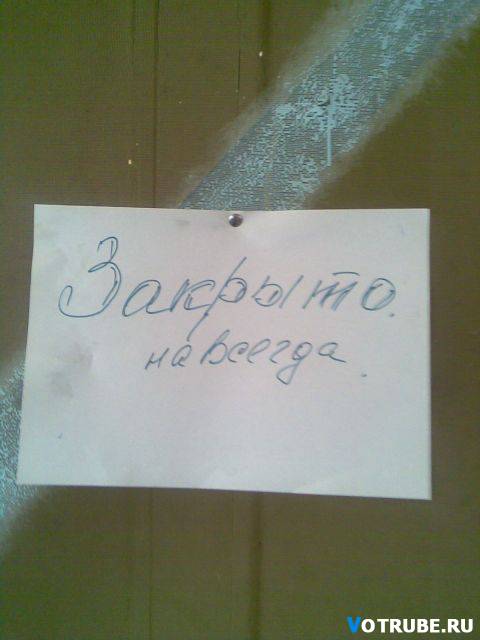 Закрыто.
навсегда.
VOTRUBE.RU